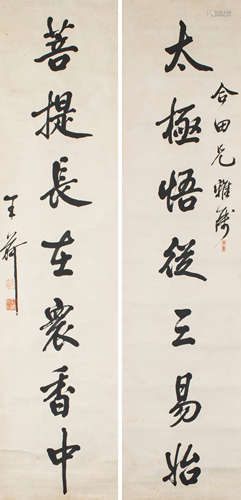 合田兄雅
太極悟從三易始
菩提長在衆香中
王